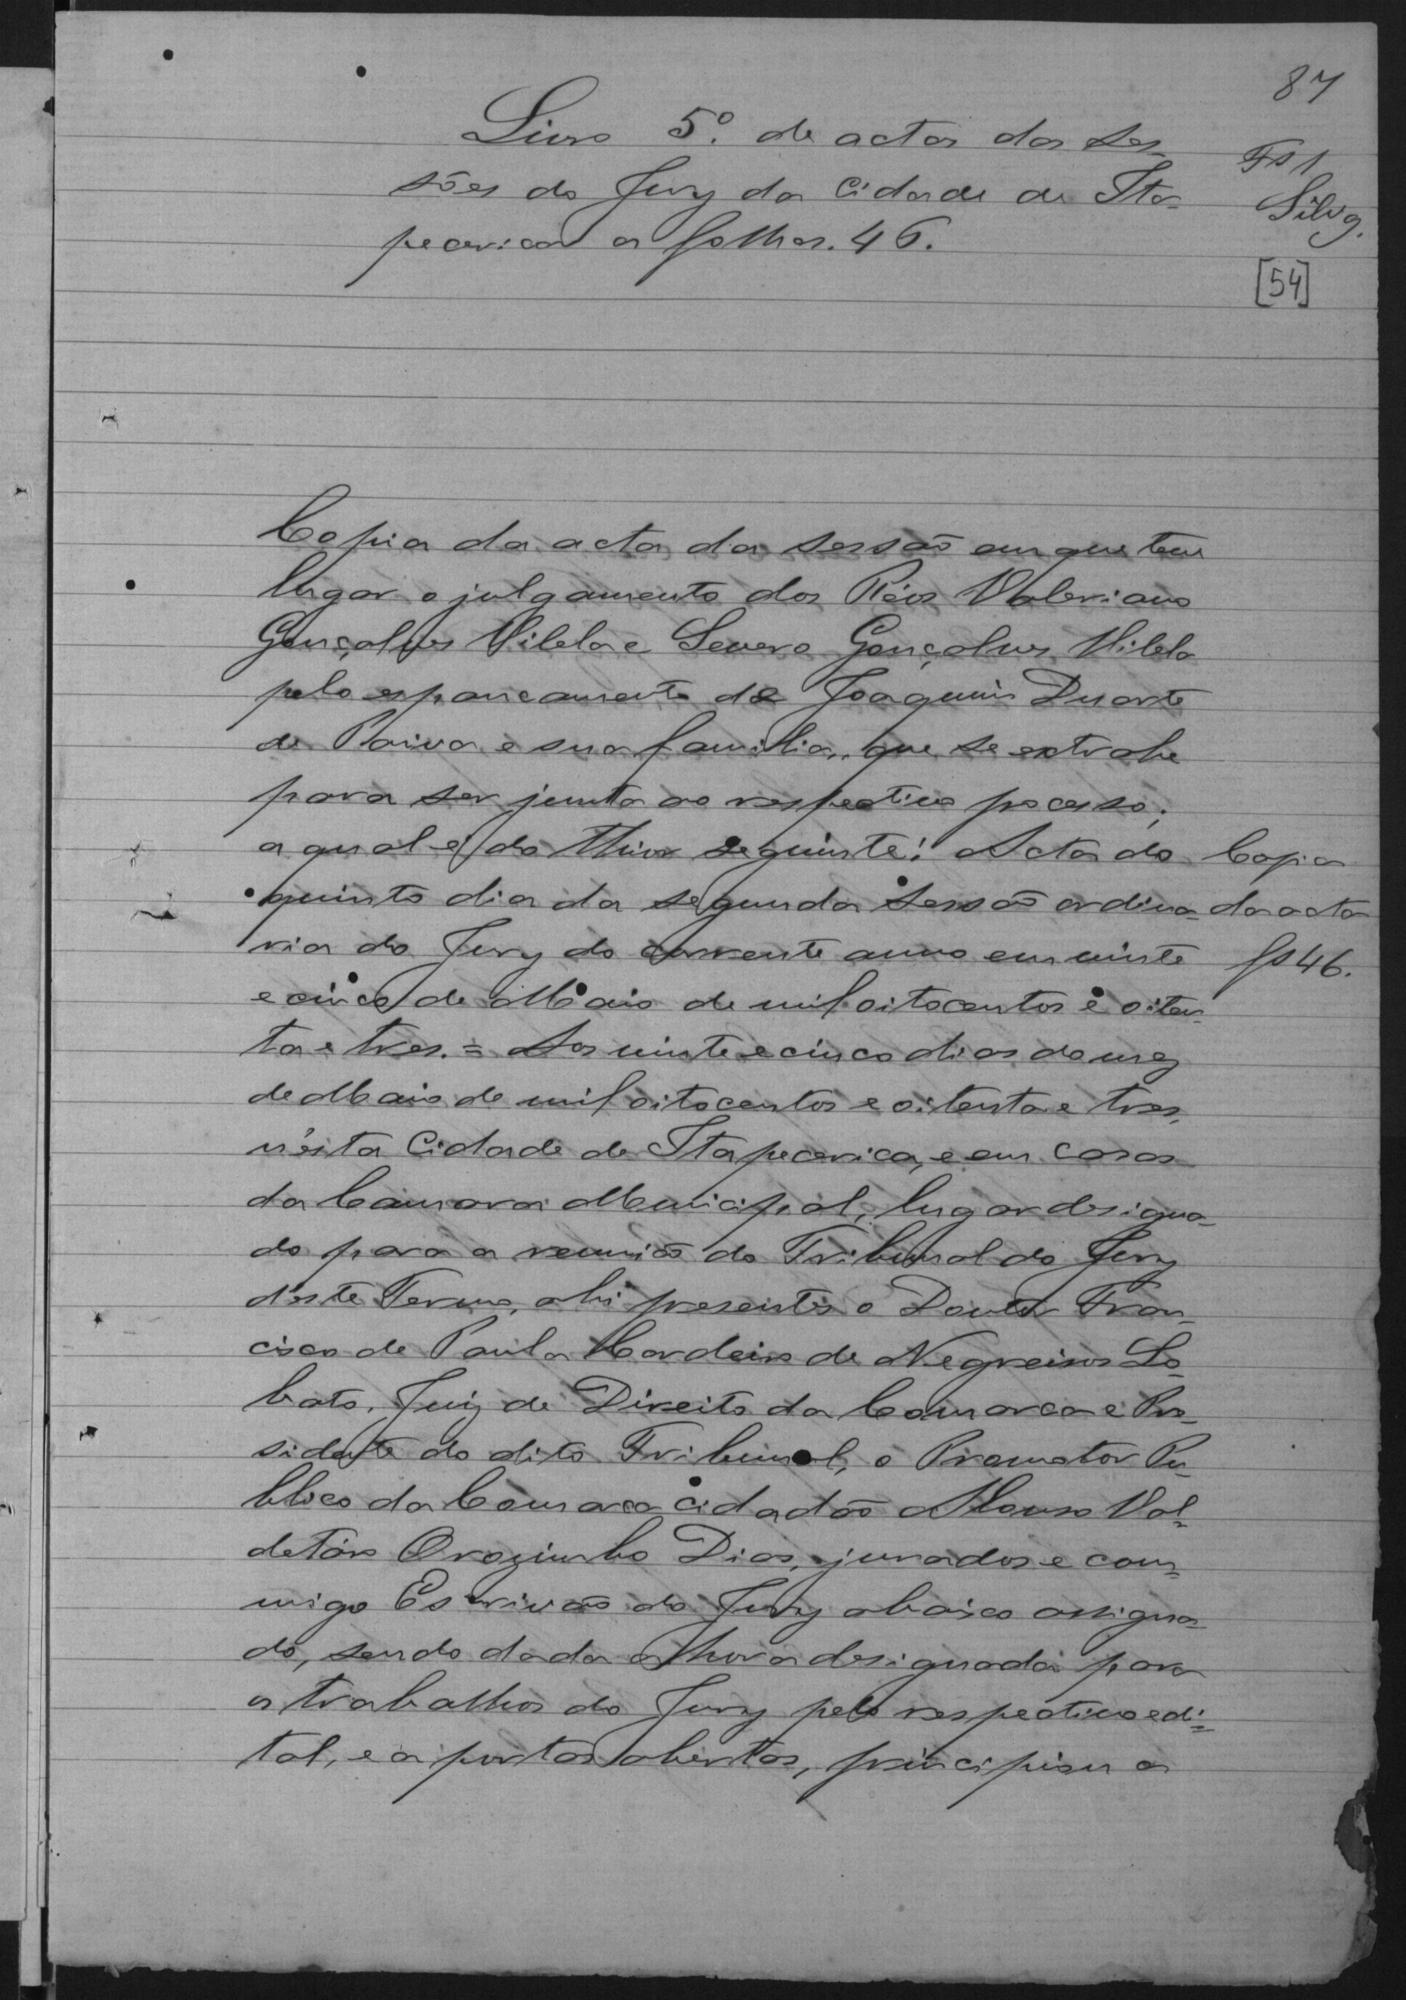 87
Fs 1
Silvª.
[54]
Livro 5º. de actas das Ses-
sões do Jury da Cidade de Ita-
pecerica a folhas. 46.
Copia da acta da Sessão em que teve
lugar o julgamento dos Réos Valeriano
Gonçalves Vilela e Severo Gonçalves Vilela
pelo espancamento de Joaquim Duarte
de Paiva e sua familia, que se extrahe
para ser junta ao respectivo processo;
a qual é do theor seguinte: Acta do
quinto dia da segunda Sessão ordina-
ria do Jury do corrente anno em vinte
e cinco de Maio de mil oitocentos e oiten-
ta e tres. = Aos vinte e cinco dias do mez
de Maio de mil oitocentos e oitenta e tres,
n'esta Cidade de Itapecerica, e em casas
da Camara Municipal, lugar designa-
do para a reunião do Tribunal do Jury
d'este Termo, ahi presentes o Doutor Fran-
cisco de Paula Cordeiro de Negreiros Lo-
bato, Juiz de Direito da Comarca e Pre-
sidente do dito Tribunal, o Promotor Pu-
blico da Comarca cidadão Affonso Val-
detaro Orozimbo Dias, jurados e com-
migo Escrivão do Jury abaixo assigna-
do, sendo dada a hora designada para
os trabalhos do Jury pelo respectivo edi-
tal, e a portas abertas, principiou a
Copia
da acta
fs 46.